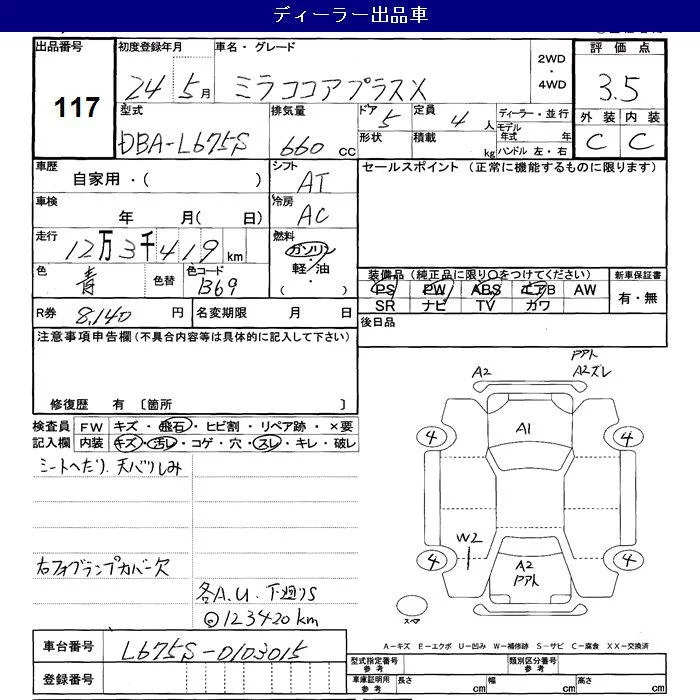 ディーラー出品車
出品番号 117
初度登録年月 24 5月
車名・グレード ミラココアプラスX
2WD・4WD
評価点 3.5
型式 DBA-L675S
排気量 660 cc
ドア 5
形状
定員 4 人
積載 kg
ディーラー・並行
モデル年式 年
ハンドル 左・右
外装 C
内装 C
車歴 自家用・( )
シフト AT
セールスポイント (正常に機能するものに限ります)
車検 年 月( 日)
冷房 AC
走行 12万3千419km
燃料 ガソリン・軽油・( )
色 青
色替
色コード B69
装備品 (純正品に限り〇をつけてください)
PS PW ABS エアB AW
SR ナビ TV カワ
新車保証書 有・無
R券 8,140 円
名変期限 月 日
後日品
注意事項申告欄 (不具合内容等は具体的に記入して下さい)
修復歴 有 〔箇所 〕
検査員記入欄
FW キズ・飛石・ヒビ割・リペア跡・×要
内装 キズ・汚レ・コゲ・穴・スレ・キレ・破レ
シートへたり、天バリしみ
右フォグランプカバー欠
各A.U. 下廻りS
◎123420km
A2
Pアト
A2ズレ
4
A1
4
W2
4
A2
Pアト
4
スペア
A−キズ E−エクボ U−凹み W−補修跡 S−サビ C−腐食 XX−交換済
車台番号 L675S-0103015
登録番号
型式指定番号 参考
類別区分番号 参考
車庫証明用 参考
長さ cm
幅 cm
高さ cm